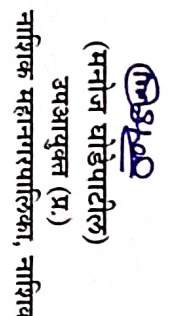 (मनोज घोडेपाटील)
उपआयुक्त (प्र.)
नाशिक महानगरपालिका,